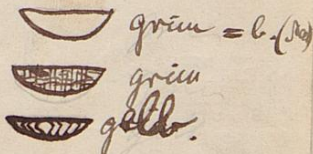 grün = b.
grün
gelb.